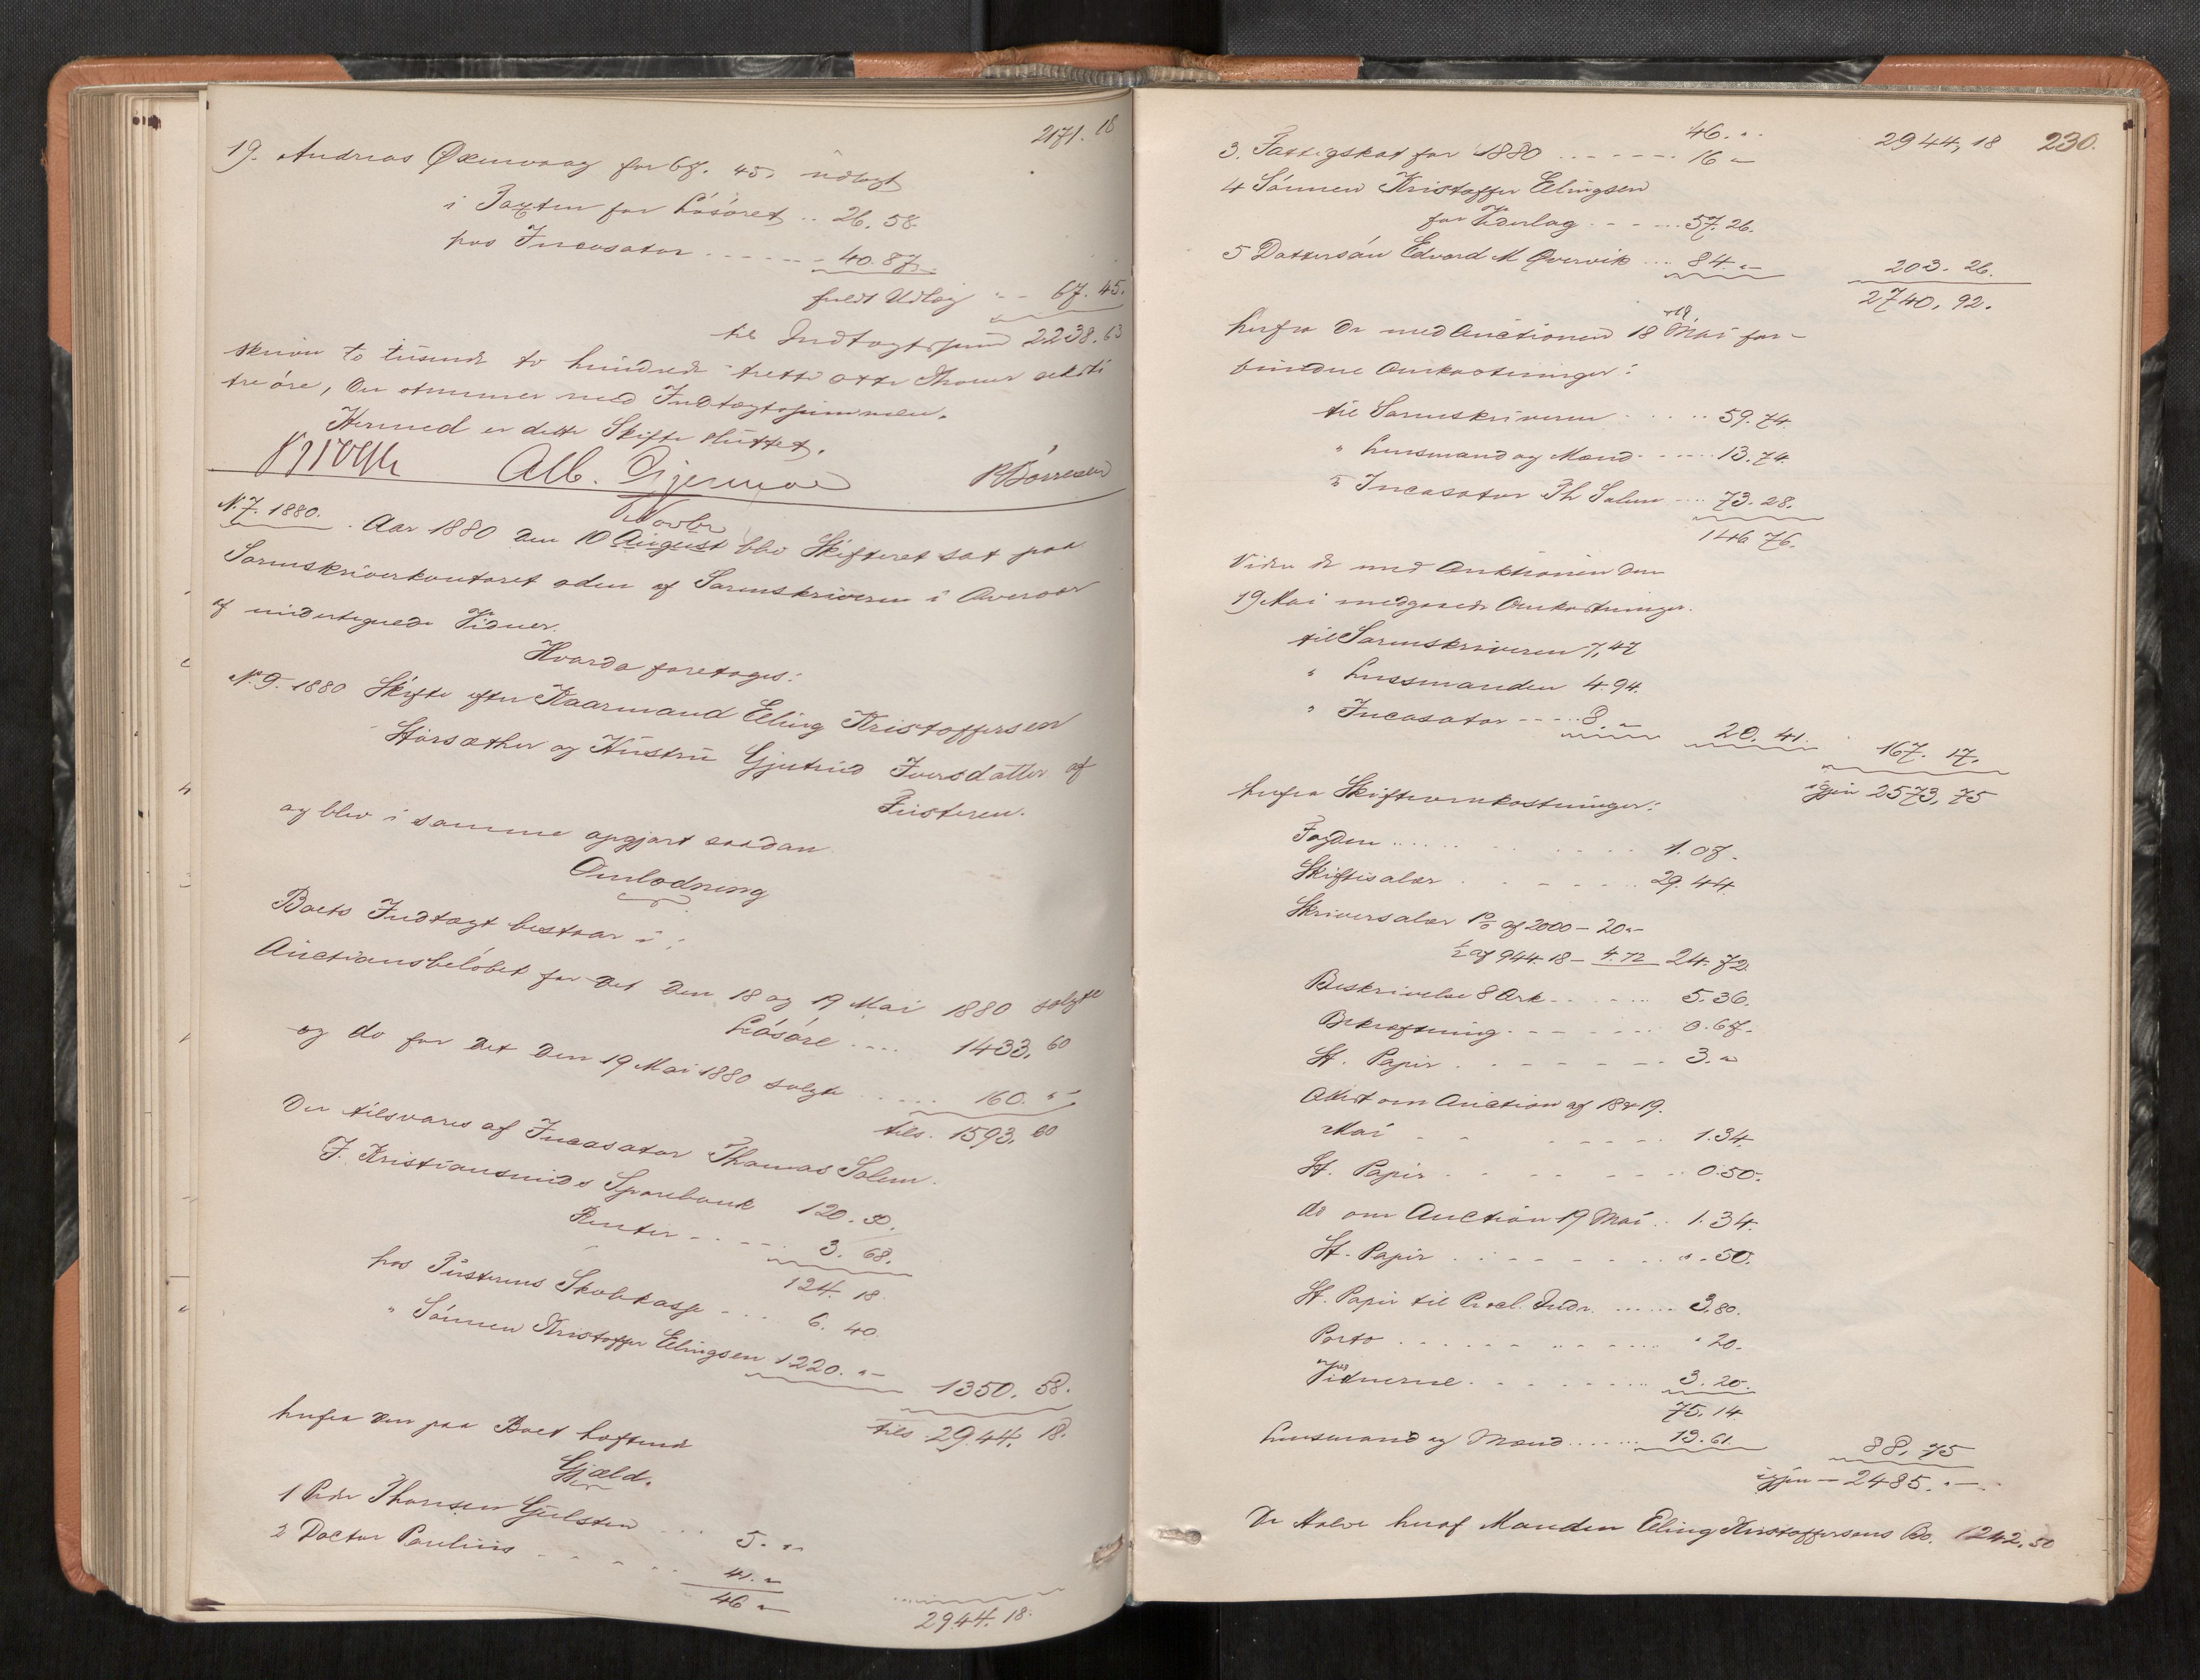 2171. 18
19. Andreas Øxenvaag for 67. 45. udlagt
i Taxten for Løsøret .. 26. 58.
hos Incasator ...... 40. 87.
fuldt Udlæg -- 67. 45.
til Indtægtssum 2238. 63
skriver to tusinde to hundrede trette otte Kroner seksti
tre øre, der stemmer med Indtægtssummen.
Hermed er dette Skifte sluttet.
Alb. Gjermoe P. Børresen
N. 7. 1880. Aar 1880 den 10 August Novbr blev Skifteret sat paa
Sorenskriverkontoret sden af Sorenskriveren i Overvær
af undertegnede Vidner.
Hvorda foretoges:
N. 9. 1880 Skifte efter Kaarmand Elling Kristoffersen
Storsæther og Hustru Gjertrud Iversdatter af
Tusteren.
og blev i samme opgjort saadan
Omlodning
Boets Indtægt bestaar i:
Auctionsbeløbet for det den 18 og 19 Mai 1880 solgte
Løsøre .... 1433. 60
og do for det den 19 Mai 1880 solgte ...... 160. "
tils. 1593. 60
Der tilsvares af Incasator Thomas Solem.
I Kristiansunds Sparebank 120. 50.
Renter ---- 3. 68.
124. 18.
hos Tusterens Skolekasse --- 6. 40
" Sønnen Kristoffer Elingsen 1220. "-
1350. 58.
tils. 2944. 18.
herfra den paa Boet heftende
Gjæld.
1 Peder Thoresen Gulsten ... 5. "
2 Doctor Paulins ----- 41. "
46 "
2944. 18.
230.
46. " 2944, 18
3. Fattigskat for 1880 ------ 16 "
4 Sønnen Kristoffer Elingsen
for Vederlag ------ 57. 26.
5 Dattersøn Edvard M Øvervik ... 84. " 203. 26.
2740. 92.
herfra de med Auctionen 18 " 19 Mai for-
bundne Omkostninger:
til Sorenskriveren ...... 59. 74.
" Lensmand og Mænd ----- 13. 74.
" Incasator Th Solem ---- 73. 28.
146 76.
Videre de med Auktionen den
19 Mai medgaaede Omkostninger.
til Sorenskriveren 7,47
" Lensmanden 4. 94.
" Incasator ----- 8. " 20. 41. 167. 17.
igjen 2573, 75
herfra Skifteomkostninger:
Fogden ...... 1. 07.
Skiftesalær ....... 29. 44.
Skriversalær 1% af 2000 - 20 "-
½ af 944. 18 - 4. 72 24. 72.
Beskrivelse 8 Ark ------ 5. 36.
Bekræftning ------ 0. 67.
St. Papir ------ 3. "
Attest om Auction af 18 & 19.
Mai ------ 1. 34.
St. Papir ------ 0. 50.
do om Auction 19 Mai .. 1. 34.
St. Papir ....... ". 50.
St. Papir til Procl. Indr. ...... 3,80.
Porto ....... " 20.
Vidnerne ....... 3. 20.
75. 14
Lensmand og Mænd ...... 13. 61. 88, 75
igjen - 2485. "-
De Halve heraf Manden Eling Kristoffersens Bo. 1242, 50